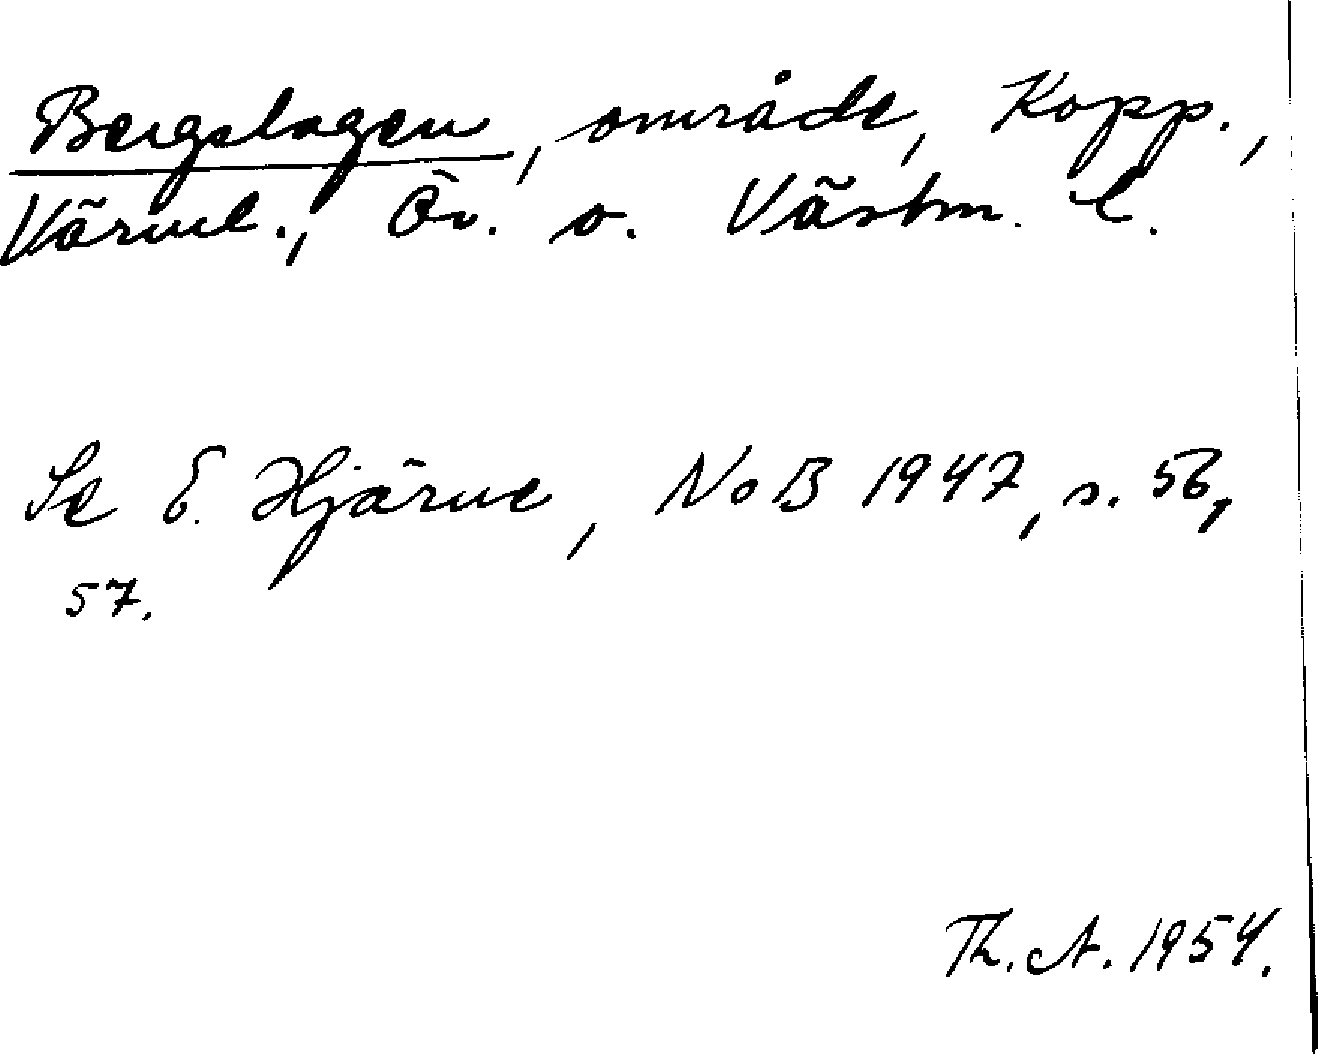 Bergslagen, område, Kopp.,
Värml., Ör. o. Västm. l.
Se E. Hjärne, NoB 1947, s. 56,
57.
Th. A. 1954.